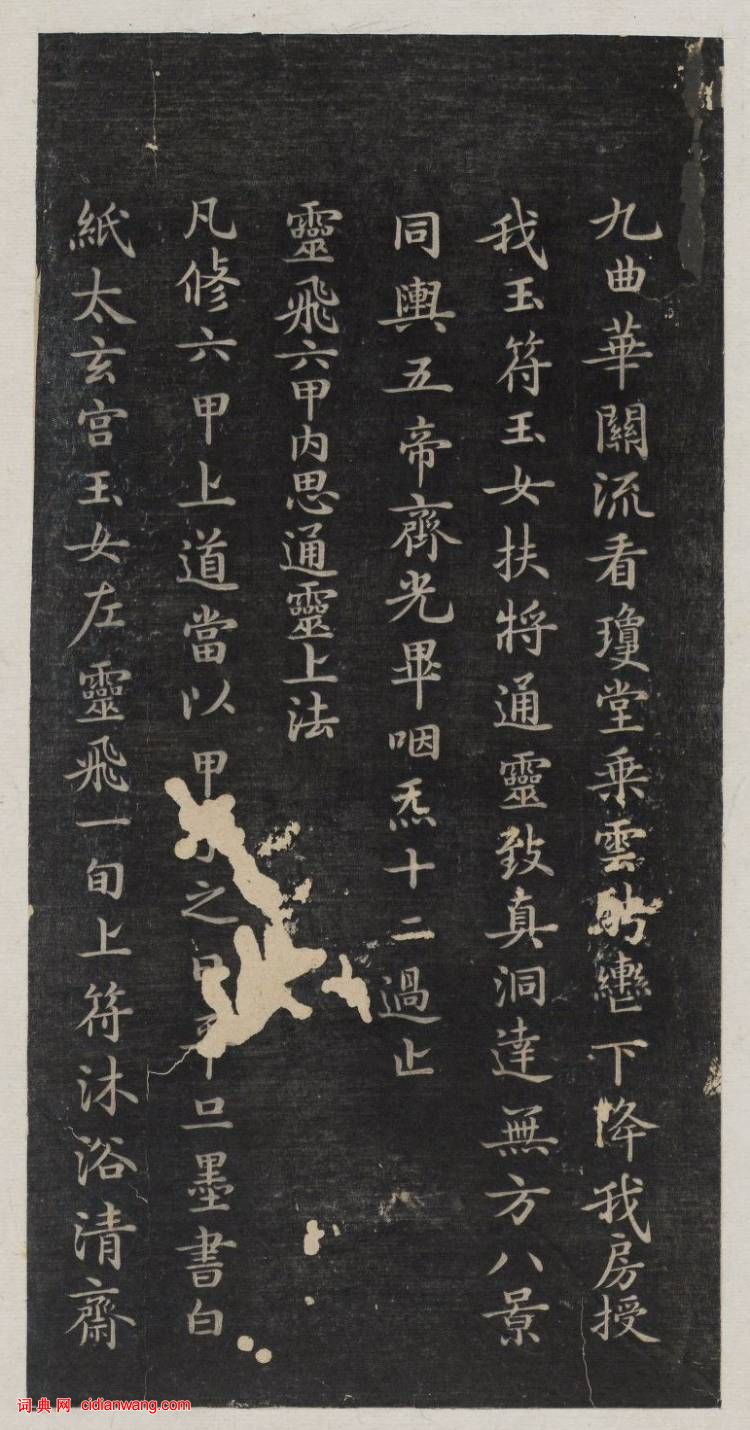 九曲華關流看瓊堂乗雲轡下降我房授
我玉符玉女扶將通靈致真洞達無方八景
同輿五帝齊光畢咽炁十二過止
靈飛六甲内思通靈上法
凡修六甲上道當以甲之日墨書白
紙太玄宫玉女左靈飛一旬上符沐浴清齋
词典网 cidianwang.com